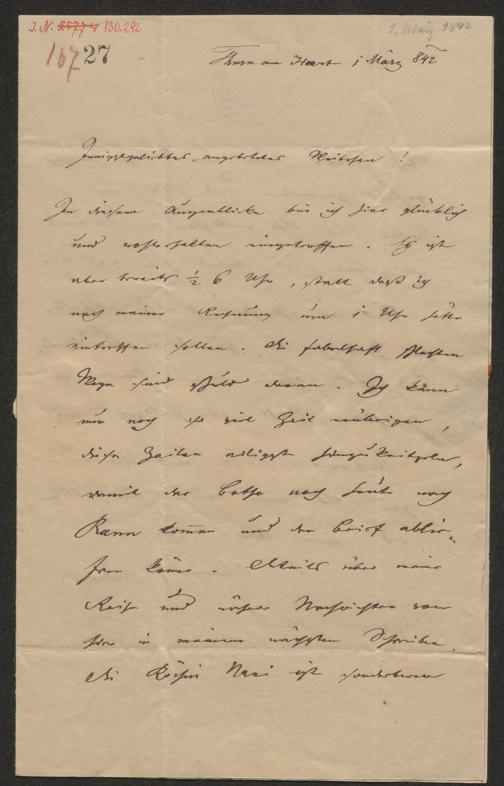 I. N. 130.292
1. März 1842
167 27
Thurn am Hart 1 März 842
Innigstgeliebtes, angebetetes !
In diesem Augenblicke bin ich hier glücklich
und wohlerhalten eingetroffen. Es ist
aber bereits ½ 6 Uhr, statt daß ich
nach meiner Rechnung um 1 Uhr hätte
eintreffen sollen. Die fabelhaft schlechten
Wege sind Schuld daran. Ich kann
nur noch so viel Zeit erübrigen,
diese Zeilen eiligst hinzukritzeln,
damit der Bothe noch heute nach
Rann kommen und den Brief ablie-
fern könne. Details über meine
Reise und nähere Nachrichten von
hier in meinem nächsten Schreiben.
Die Köchin Nani ist